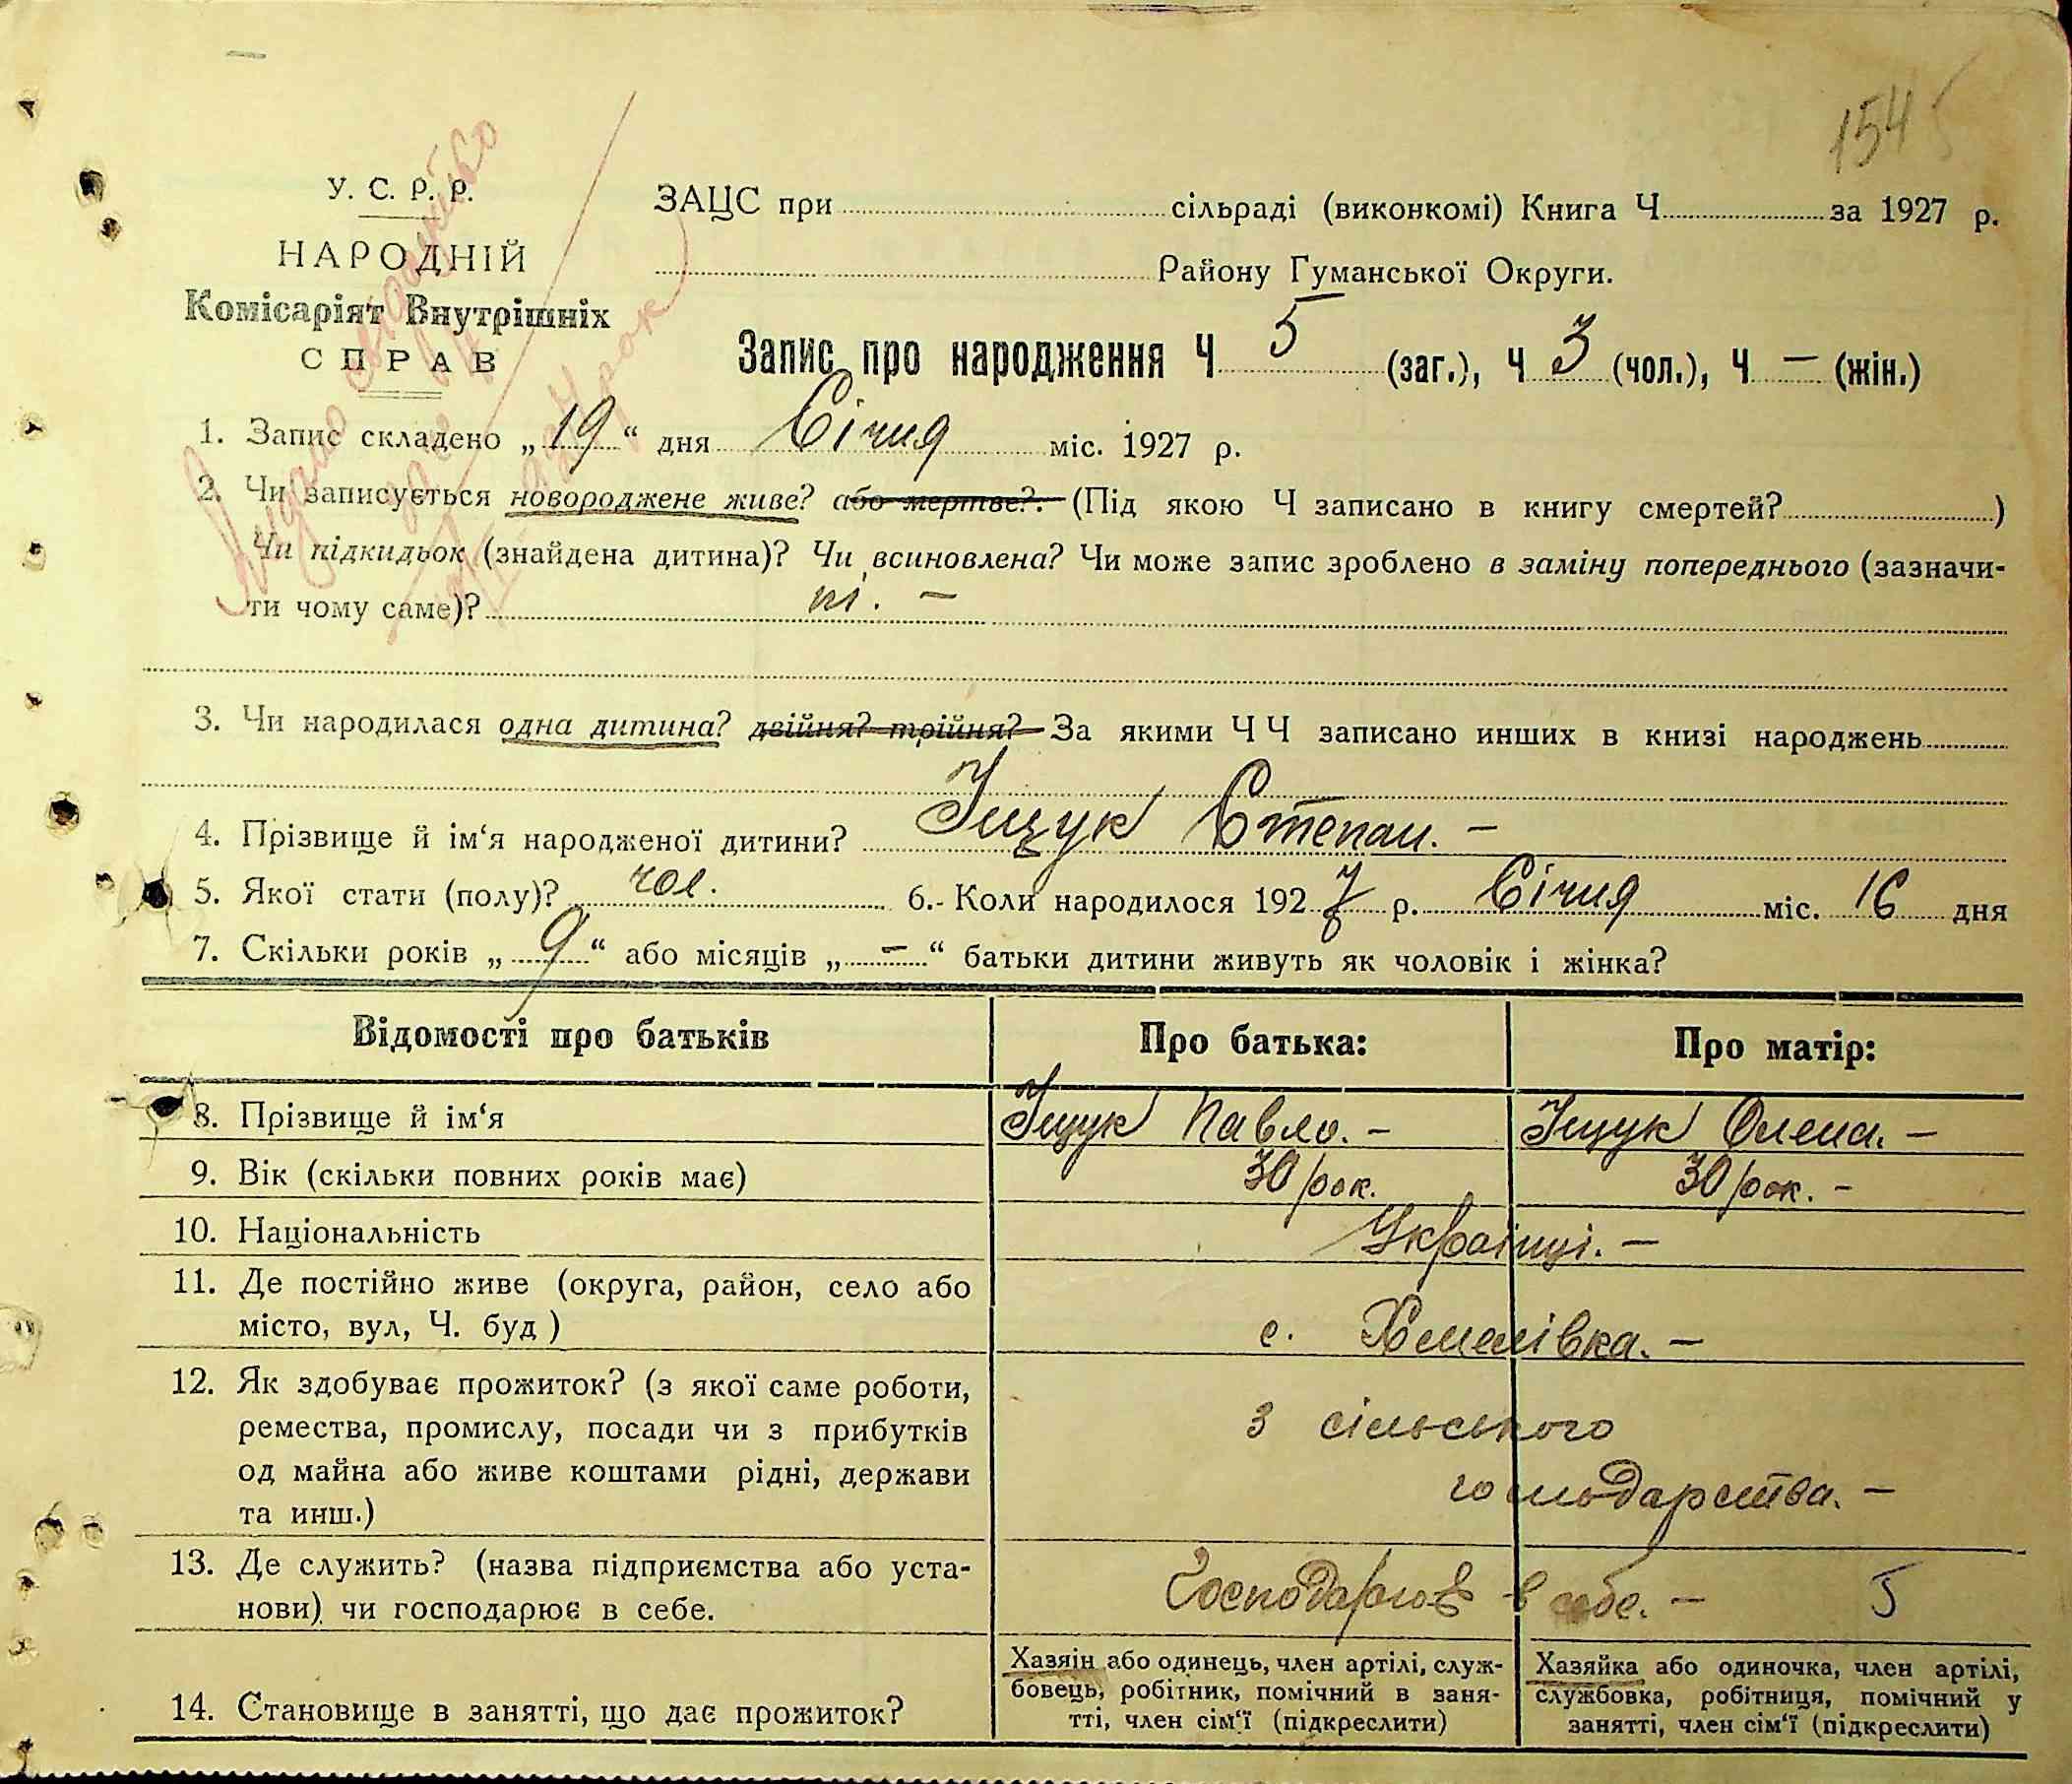 154
У. С. Р. Р.
НАРОДНІЙ
Комісаріят Внутрішніх
СПРАВ
ЗАЦС при сільраді (виконкомі) Книга Ч за 1927 р.
Району Гуманської Округи.
Запис про народження Ч 5 (заг.), Ч 3 (чол.), Ч — (жін.)
1. Запис складено „19“ дня Січня міс. 1927 р.
2. Чи записується новороджене живе? або мертве?. (Під якою Ч записано в книгу смертей? )
Чи підкидьок (знайдена дитина)? Чи всиновлена? Чи може запис зроблено в заміну попереднього (зазначи-
ти чому саме)? ні. —
3. Чи народилася одна дитина? двійня? трійня? За якими Ч Ч записано инших в книзі народжень
4. Прізвище й ім‘я народженої дитини? Іщук Степан. —
5. Якої стати (полу)? чол. 6. Коли народилося 1927 р. Січня міс. 16 дня
7. Скільки років „9“ або місяців „—“ батьки дитини живуть як чоловік і жінка?
Відомості про батьків Про батька: Про матір:
8. Прізвище й ім‘я Іщук Павло. — Іщук Олена. —
9. Вік (скільки повних років має) 30 рок. 30 рок. —
10. Національність Українці. —
11. Де постійно живе (округа, район, село або
місто, вул, Ч. буд ) с. Хемелівка. —
12. Як здобуває прожиток? (з якої саме роботи,
ремества, промислу, посади чи з прибутків
од майна або живе коштами рідні, держави
та инш.)
з сільського
господарства. —
13. Де служить? (назва підприємства або уста-
нови) чи господарює в себе. Господарює в себе. — 5
14. Становище в занятті, що дає прожиток?
Хазяін або одинець, член артілі, служ-
бовець, робітник, помічний в заня-
тті, член сім‘ї (підкреслити)
Хазяйка або одиночка, член артілі,
службовка, робітниця, помічний у
занятті, член сім‘ї (підкреслити)